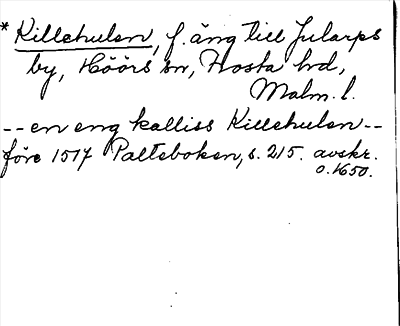 * Killehulen, f. äng till Jularps
by, Höörs sn, Frosta hd,
Malm. l.
-- en eng kalliss Killehulen --
före 1517 Palteboken, s. 215. avskr.
o. 1650.